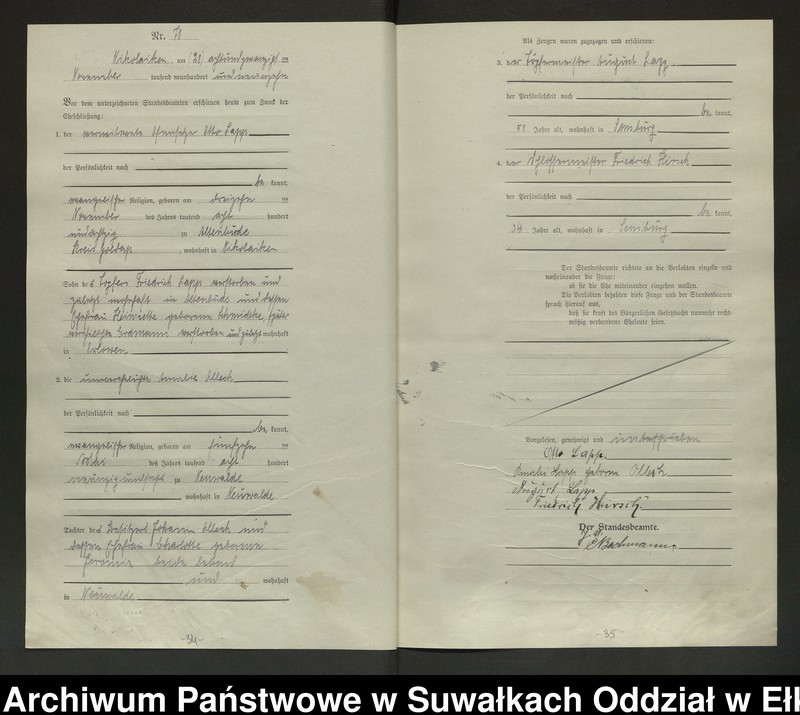 Nr. 78
Nikolaiken am (28) achtundzwanzigsten
November tausend neunhundert undneunzehn
Vor dem unterzeichneten Standesbeamten erschienen heute zum Zweck der
Eheschließung:
1. der verwitwete Ofensetzer Otto Lapp
der Persönlichkeit nach
be kannt,
evangelischer Religion, geboren am dreizehn ten
November des Jahres tausend acht hundert
undachtzig zu Altenbude
Kreis Goldap, wohnhaft in Nikolaiken
Sohn des Töpfers Friedrich Lapp verstorben und
zuletzt wohnhaft in Altenbude und dessen
Ehefrau geborenen Schmidtke, später
verehelichte verstorben und zuletzt wohnhaft
in
2. die unverehelichte Amalie Olleck
der Persönlichkeit nach
be kannt,
evangelischer Religion, geboren am fünfzehn ten
des Jahres tausend acht hundert
neunzigundsechs zu Neuwalde
wohnhaft in Neuwalde
Tochter des Besitzers Johann Olleck und
dessen Ehefrau Charlotte geborene
beide lebend
und wohnhaft
in Neuwalde
-34-
Als Zeugen waren zugezogen und erschienen:
3. der Töpfermeister August Lapp
der Persönlichkeit nach
be kannt,
Jahre alt, wohnhaft in Sensburg
4. der Schlossermeister Friedrich Hirsch
der Persönlichkeit nach
be kannt,
34 Jahre alt, wohnhaft in Sensburg
Der Standesbeamte richtete an die Verlobten einzeln und
nacheinander die Frage:
ob sie die Ehe miteinander eingehen wollen.
Die Verlobten bejahten diese Frage und der Standesbeamte
sprach hierauf aus,
daß sie kraft des Bürgerlichen Gesetzbuchs nunmehr recht-
mäßig verbundene Eheleute seien.
Vorgelesen, genehmigt und unterschrieben
Otto Lapp.
Amalie Lapp geboren Olleck
August Lapp
Friedrich Hirsch
Der Standesbeamte.
-35-
Archiwum Państwowe w Suwałkach Oddział w Ełk